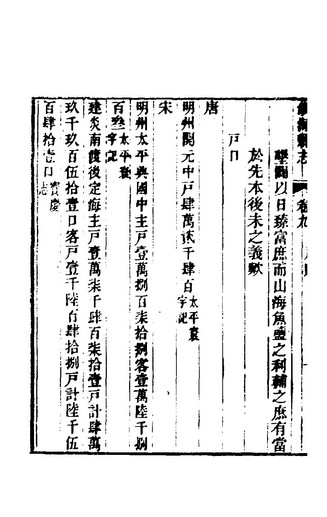 鎮海縣志 卷九
墾闢以日臻富庶而山海魚鹽之利輔之庶有當
於先本後末之義歟
戶口
唐
明州開元中戶肆萬貳千肆百太平寰宇記
宋
明州太平興國中主戶壹萬捌百柒拾捌客壹萬陸千捌
百叁太平寰宇記
建炎南渡後定海主戶壹萬柒千肆百柒拾壹戶計肆萬
玖千玖百伍拾壹口客戶壹千陸百肆拾捌戶計陸千伍
百肆拾叁口寶慶志